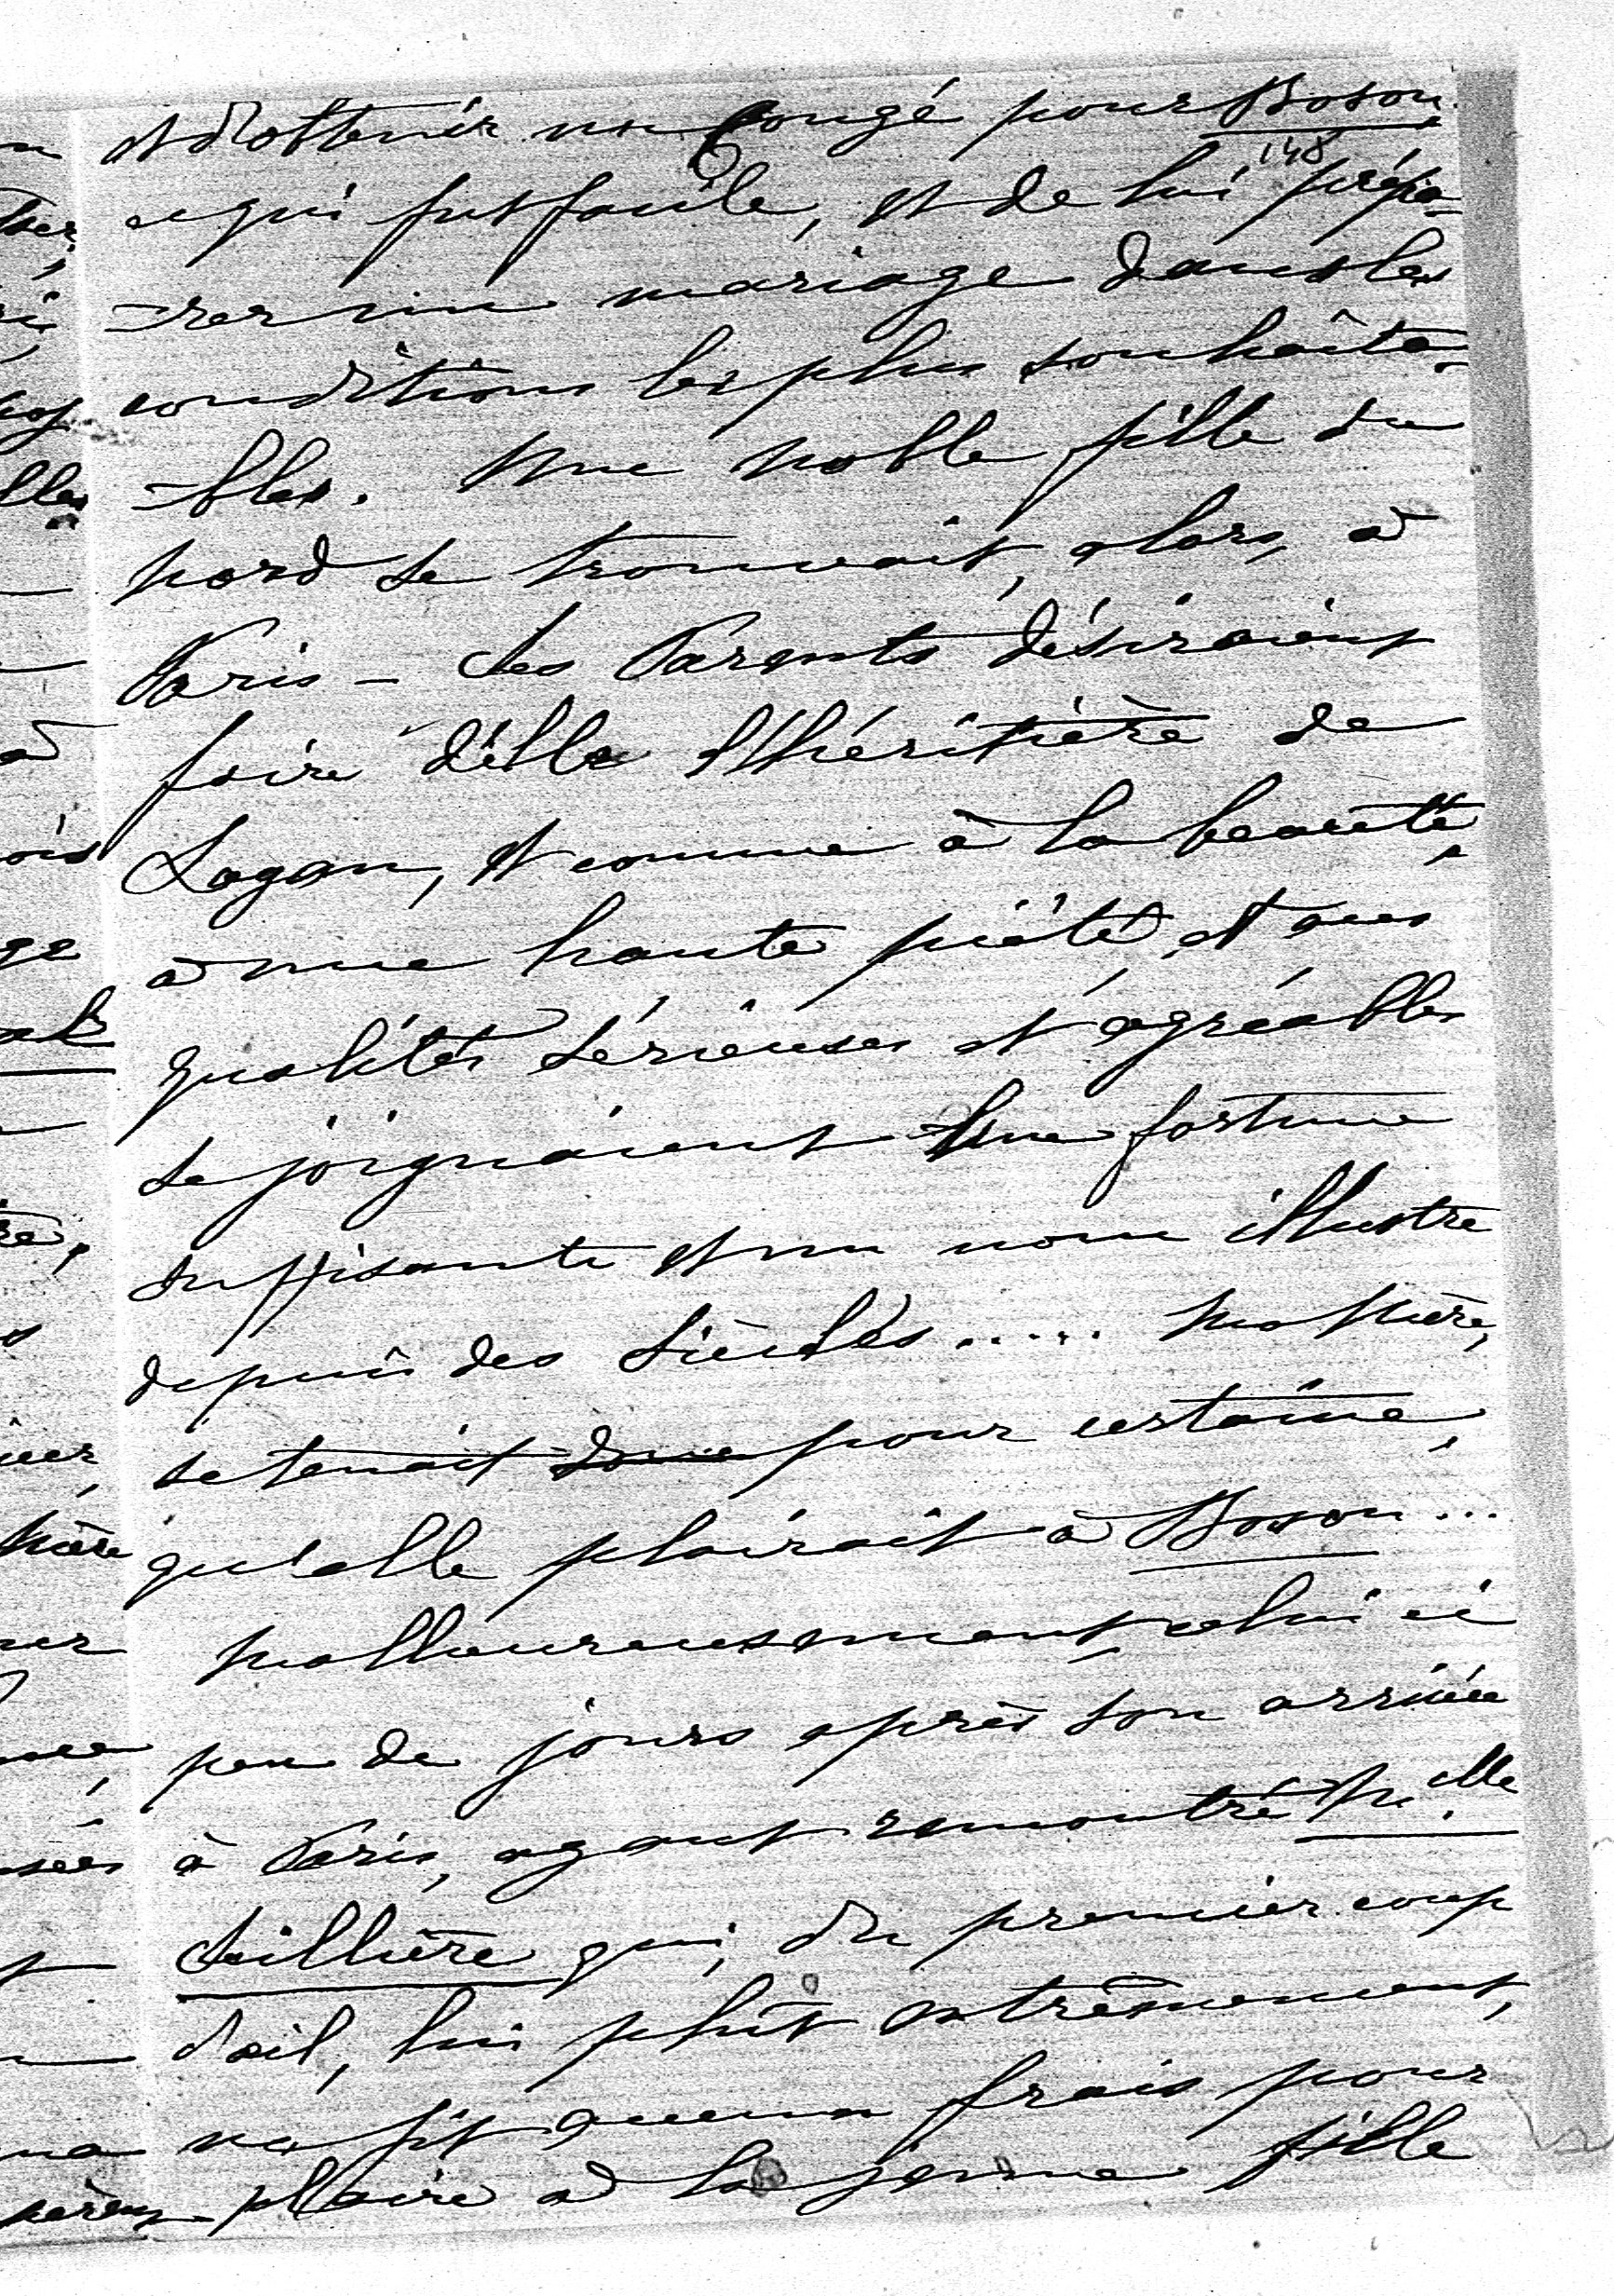 et d'obtenir un congé pour Boson
148
ce qui fut facile, et de lui prépa-
-rer un mariage dans les
conditions les plus souhaita-
-bles. Une noble fille du
nord se trouvait, alors, à
Paris - Ses Parents désiraient
faire d'elle l'héritière de
Sagan, et comme à la beauté,
à une haute piété, et aux
qualités sérieuses et agréables
se joignaient une fortune
suffisante et un nom illustre
depuis des siècles..... ma Mère,
se tenait donc pour certaine,
qu'elle plairait à Boson...
Malheureusement, celui ci
peu de jours après son arrivée
à Paris, ayant rencontré Melle
Seillière qui, du premier coup
d'œil, lui plût extrêmement,
ne fit aucun frais pour
plaire à la jeune fille